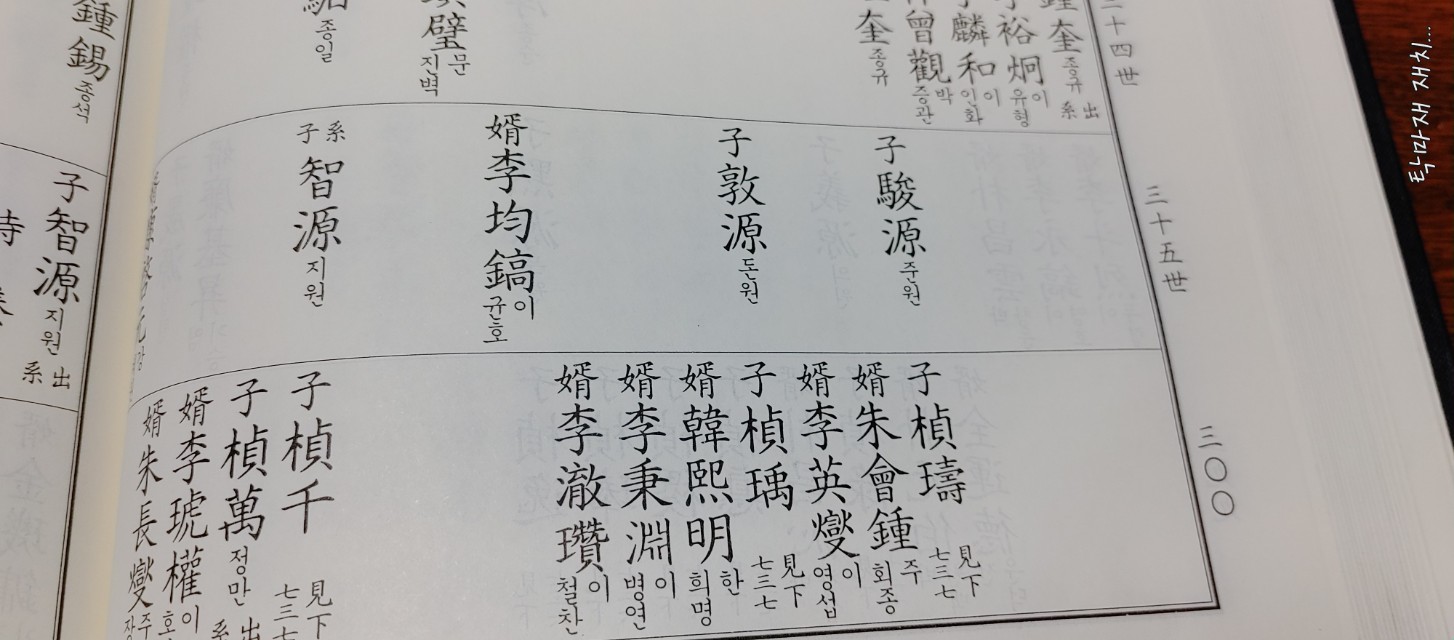 탁마재 재치...
三十四世
鍾奎 종규 出系
裕炯 이유형
麟和 이인화
曾觀 박증관
奎 종규
璧 문진벽
종일
三十五世
子駿源 준원
子敦源 돈원
婿李均鎬 이균호
系子智源 지원
三〇〇
子楨璹 見下七三七
婿朱會鍾 주회종
婿李英燮 이영섭
子楨瑀 見下七三七
婿韓熙明 한희명
婿李秉淵 이병연
婿李澈瓚 이철찬
子楨千 見下七三七
子楨萬 정만 出系
婿李琥權 이호
婿朱長燮 주장
鍾錫 종석
子智源 지원 出系